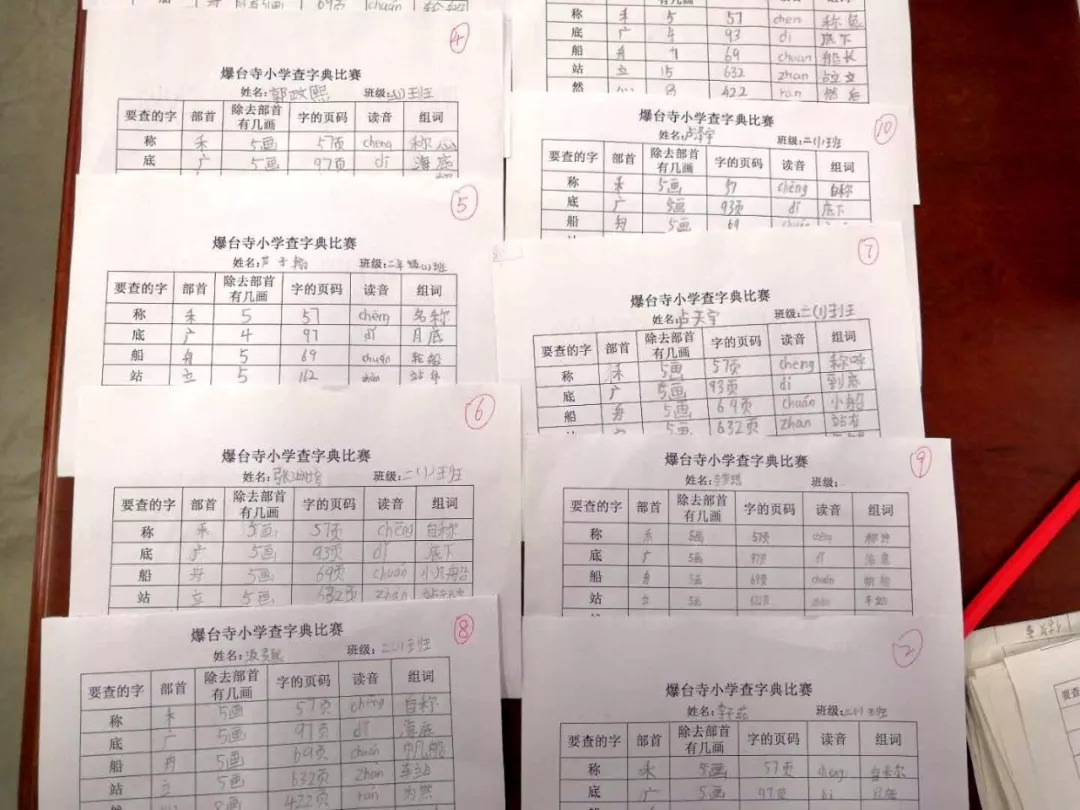 船 舟 69页 chuán 轮船
④
爆台寺小学查字典比赛
姓名: 班级:二(1)班
要查的字 部首 除去部首有几画 字的页码 读音 组词
称 禾 5画 57页 cheng 称心
底 广 5画 97页 dǐ 海底
⑤
爆台寺小学查字典比赛
姓名: 班级:二年级(1)班
要查的字 部首 除去部首有几画 字的页码 读音 组词
称 禾 5 57 chēng 名称
底 广 4 97 dǐ 月底
船 舟 5 69 chuán 轮船
站 立 5 162
⑥
爆台寺小学查字典比赛
姓名: 班级:二(1)班
要查的字 部首 除去部首有几画 字的页码 读音 组词
称 禾 5画 57页 chēng 自称
底 广 5画 93页 dǐ 底下
船 舟 5画 69页 chuán 小船
站 立 5画 632页 zhàn
⑧
爆台寺小学查字典比赛
姓名: 班级:二(1)班
要查的字 部首 除去部首有几画 字的页码 读音 组词
称 禾 5画 57页 chēng 自称
底 广 5画 97页 dǐ 海底
船 舟 5画 69页 chuán 帆船
站 立 5画 632页 zhàn 车站
然 8画 422页 rán
称 禾 5 57 chen
底 广 4 93 di 底下
船 舟 69 chuan 船长
站 立 15 632 zhan 站立
然 8 422 rán 然后
⑩
爆台寺小学查字典比赛
姓名:卢泽宇 班级:二(1)班
要查的字 部首 除去部首有几画 字的页码 读音 组词
称 禾 5画 57 chēng 自称
底 广 5画 93页 dǐ 底下
船 舟 5画 69
⑦
爆台寺小学查字典比赛
姓名:卢天宇 班级:二(1)班
要查的字 部首 除去部首有几画 字的页码 读音 组词
称 禾 5画 57页 chēng 称呼
底 广 5画 93页 di 到底
船 舟 5画 69页 chuán 小船
站 5画 632页 zhan
⑨
爆台寺小学查字典比赛
姓名: 班级:
要查的字 部首 除去部首有几画 字的页码 读音 组词
称 禾 5画 57页 chēng
底 广 5画 97页 dǐ
船 舟 5画 69页 chuán
站 立 5画 车站
②
爆台寺小学查字典比赛
姓名: 班级:二(1)班
要查的字 部首 除去部首有几画 字的页码 读音 组词
称 禾 5画 57页 自称
底 广 5画 97页